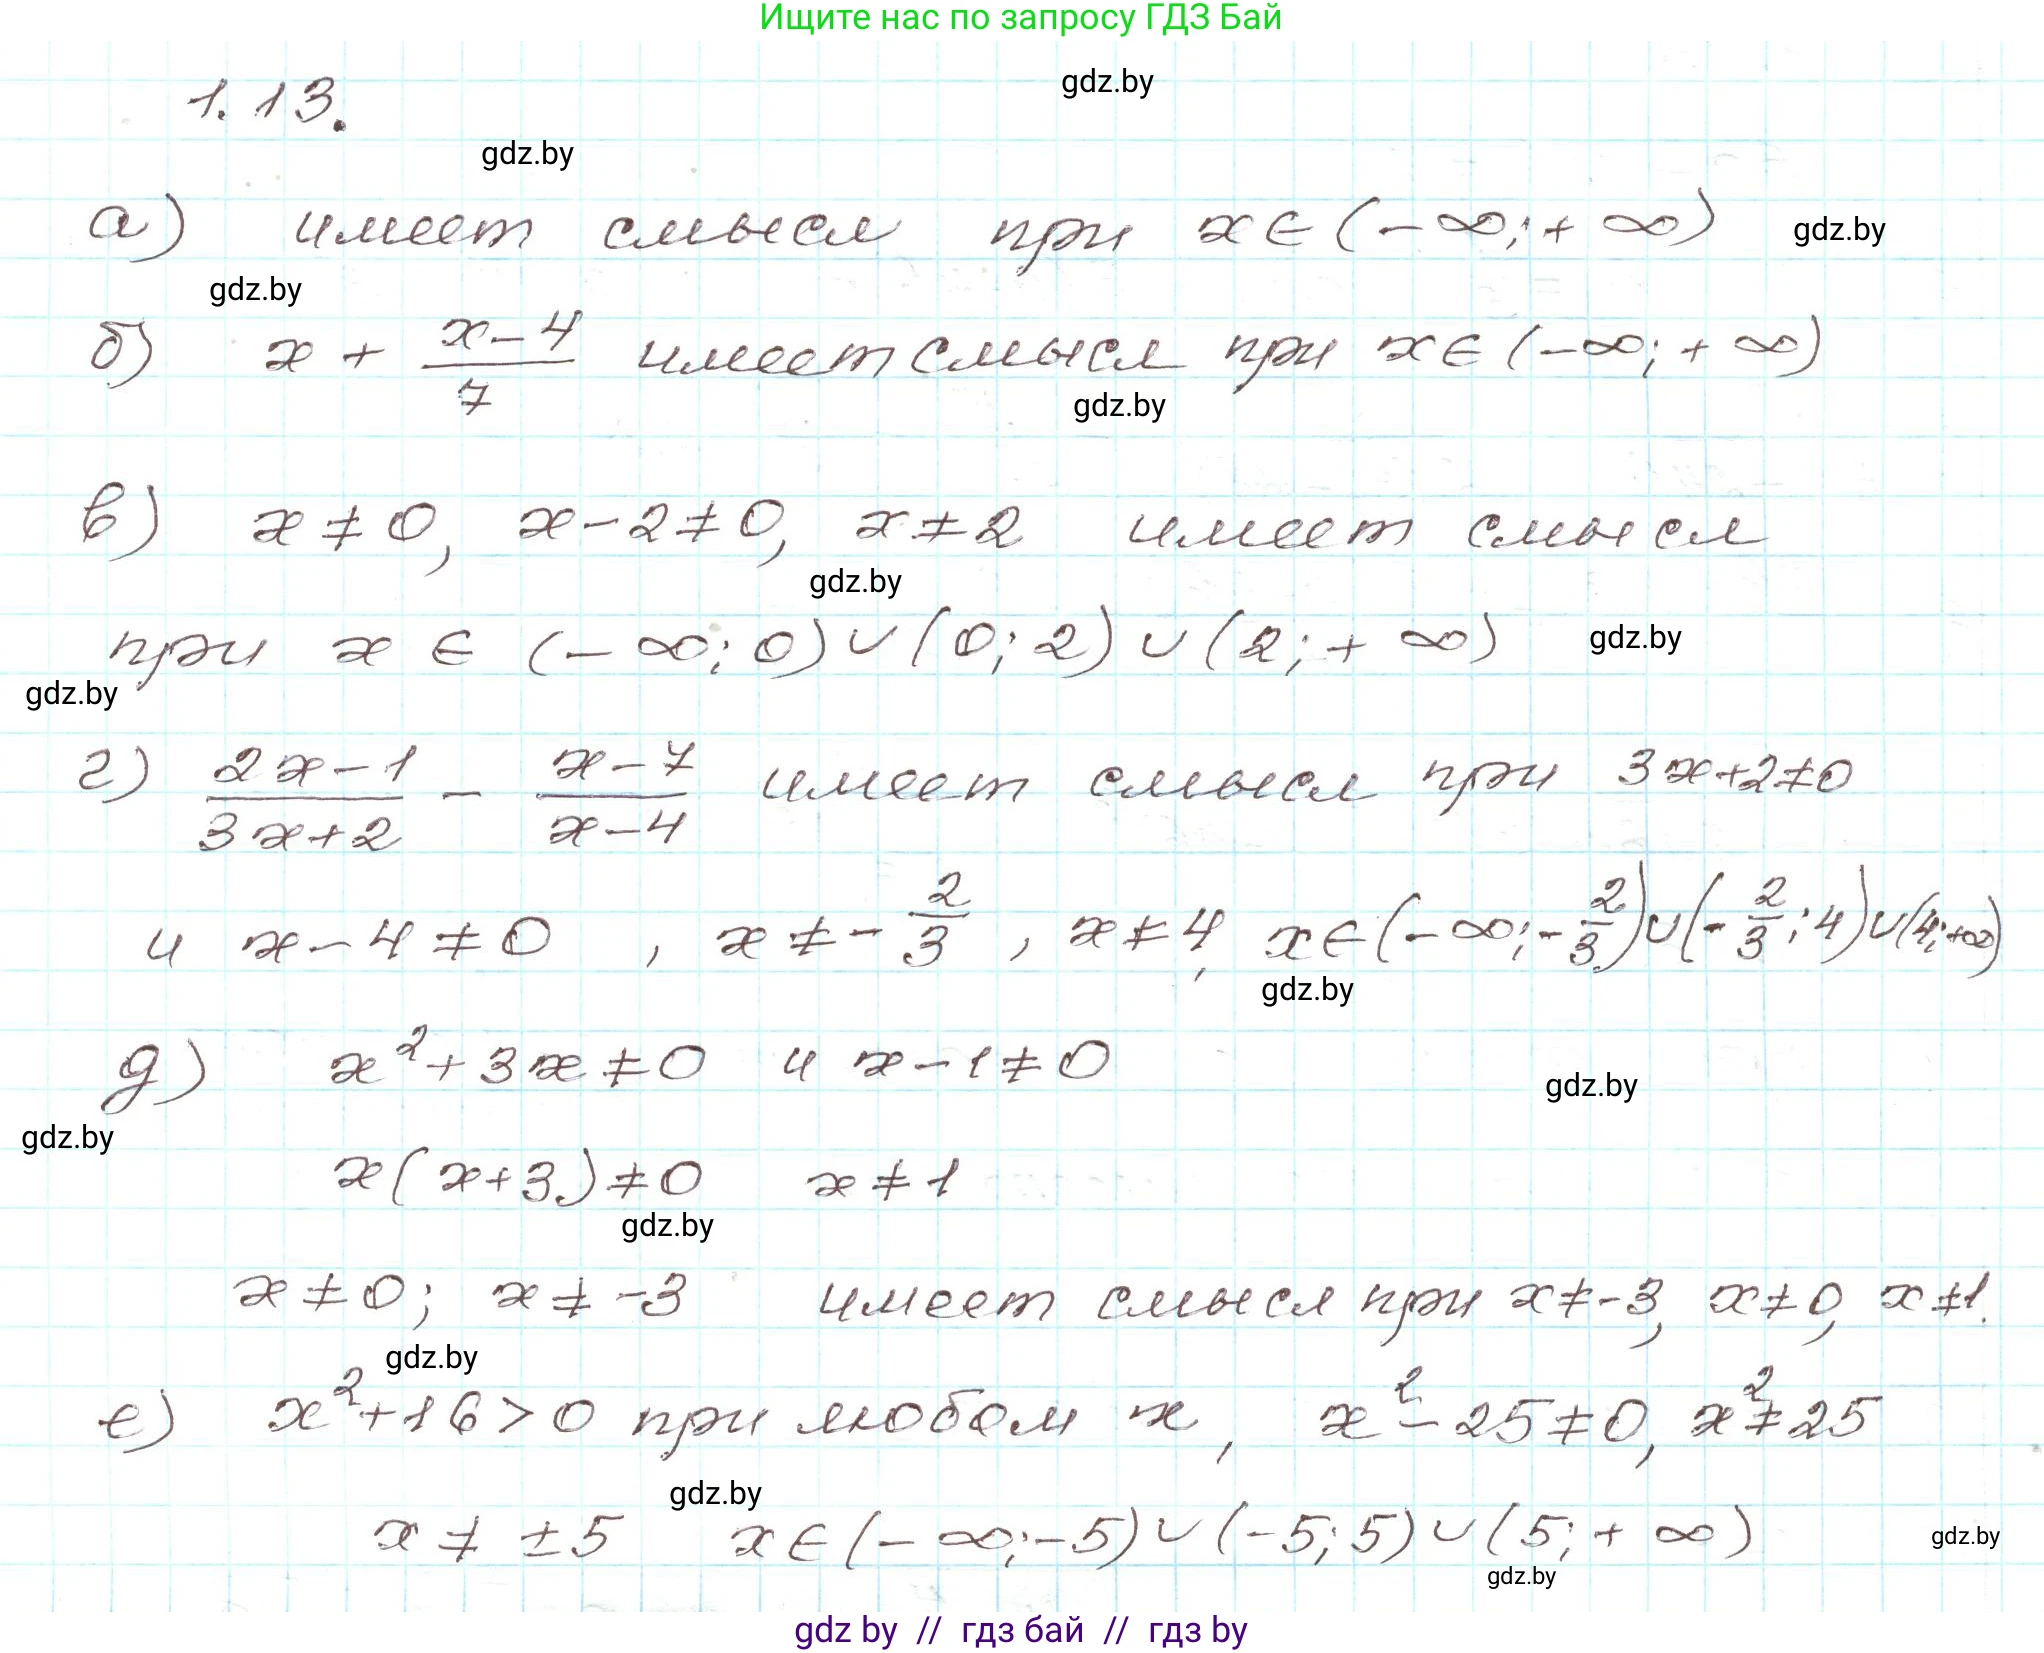 Ищите нас по запросу ГДЗ Бай
gdz.by
1.13.
gdz.by
а) имеет смысл при x∈(-∞;+∞)
gdz.by
gdz.by
б) x + (x-4)/7 имеет смысл при x∈(-∞;+∞)
gdz.by
в) x≠0, x-2≠0, x≠2 имеет смысл
gdz.by
при x ∈ (-∞;0)∪(0;2)∪(2;+∞)
gdz.by
gdz.by
г) (2x-1)/(3x+2) - (x-7)/(x-4) имеет смысл при 3x+2≠0
и x-4≠0, x≠-2/3, x≠4, x∈(-∞;-2/3)∪(-2/3;4)∪(4;+∞)
gdz.by
д) x²+3x≠0 и x-1≠0
gdz.by
gdz.by
x(x+3)≠0 x≠1
gdz.by
x≠0; x≠-3 имеет смысл при x≠-3, x≠0, x≠1.
gdz.by
е) x²+16>0 при любом x, x²-25≠0, x²≠25
gdz.by
x≠±5 x∈(-∞;-5)∪(-5;5)∪(5;+∞)
gdz.by
gdz.by
gdz by // гдз бай // гдз by